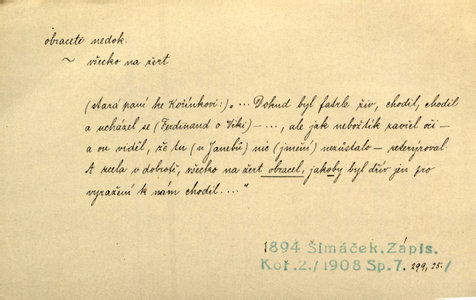 obraceti nedok.
~ všecko na žert
(stará paní ke Kořínkovi:) „... Dokud byl fatrle živ, chodil, chodil
a ucházel se (Ferdinand o Viki) – ..., ale jak nebožtík zavřel oči –
a on viděl, že tu (u Janebů) nic (jmění) nezůstalo – reteryroval.
A zcela v dobrotě, všecko na žert obracel, jakoby byl dřív jen pro
vyražení k nám chodil...."
1894 Šimáček. Zápis.
Koř. 2./1908 Sp. 7. 299, 25./